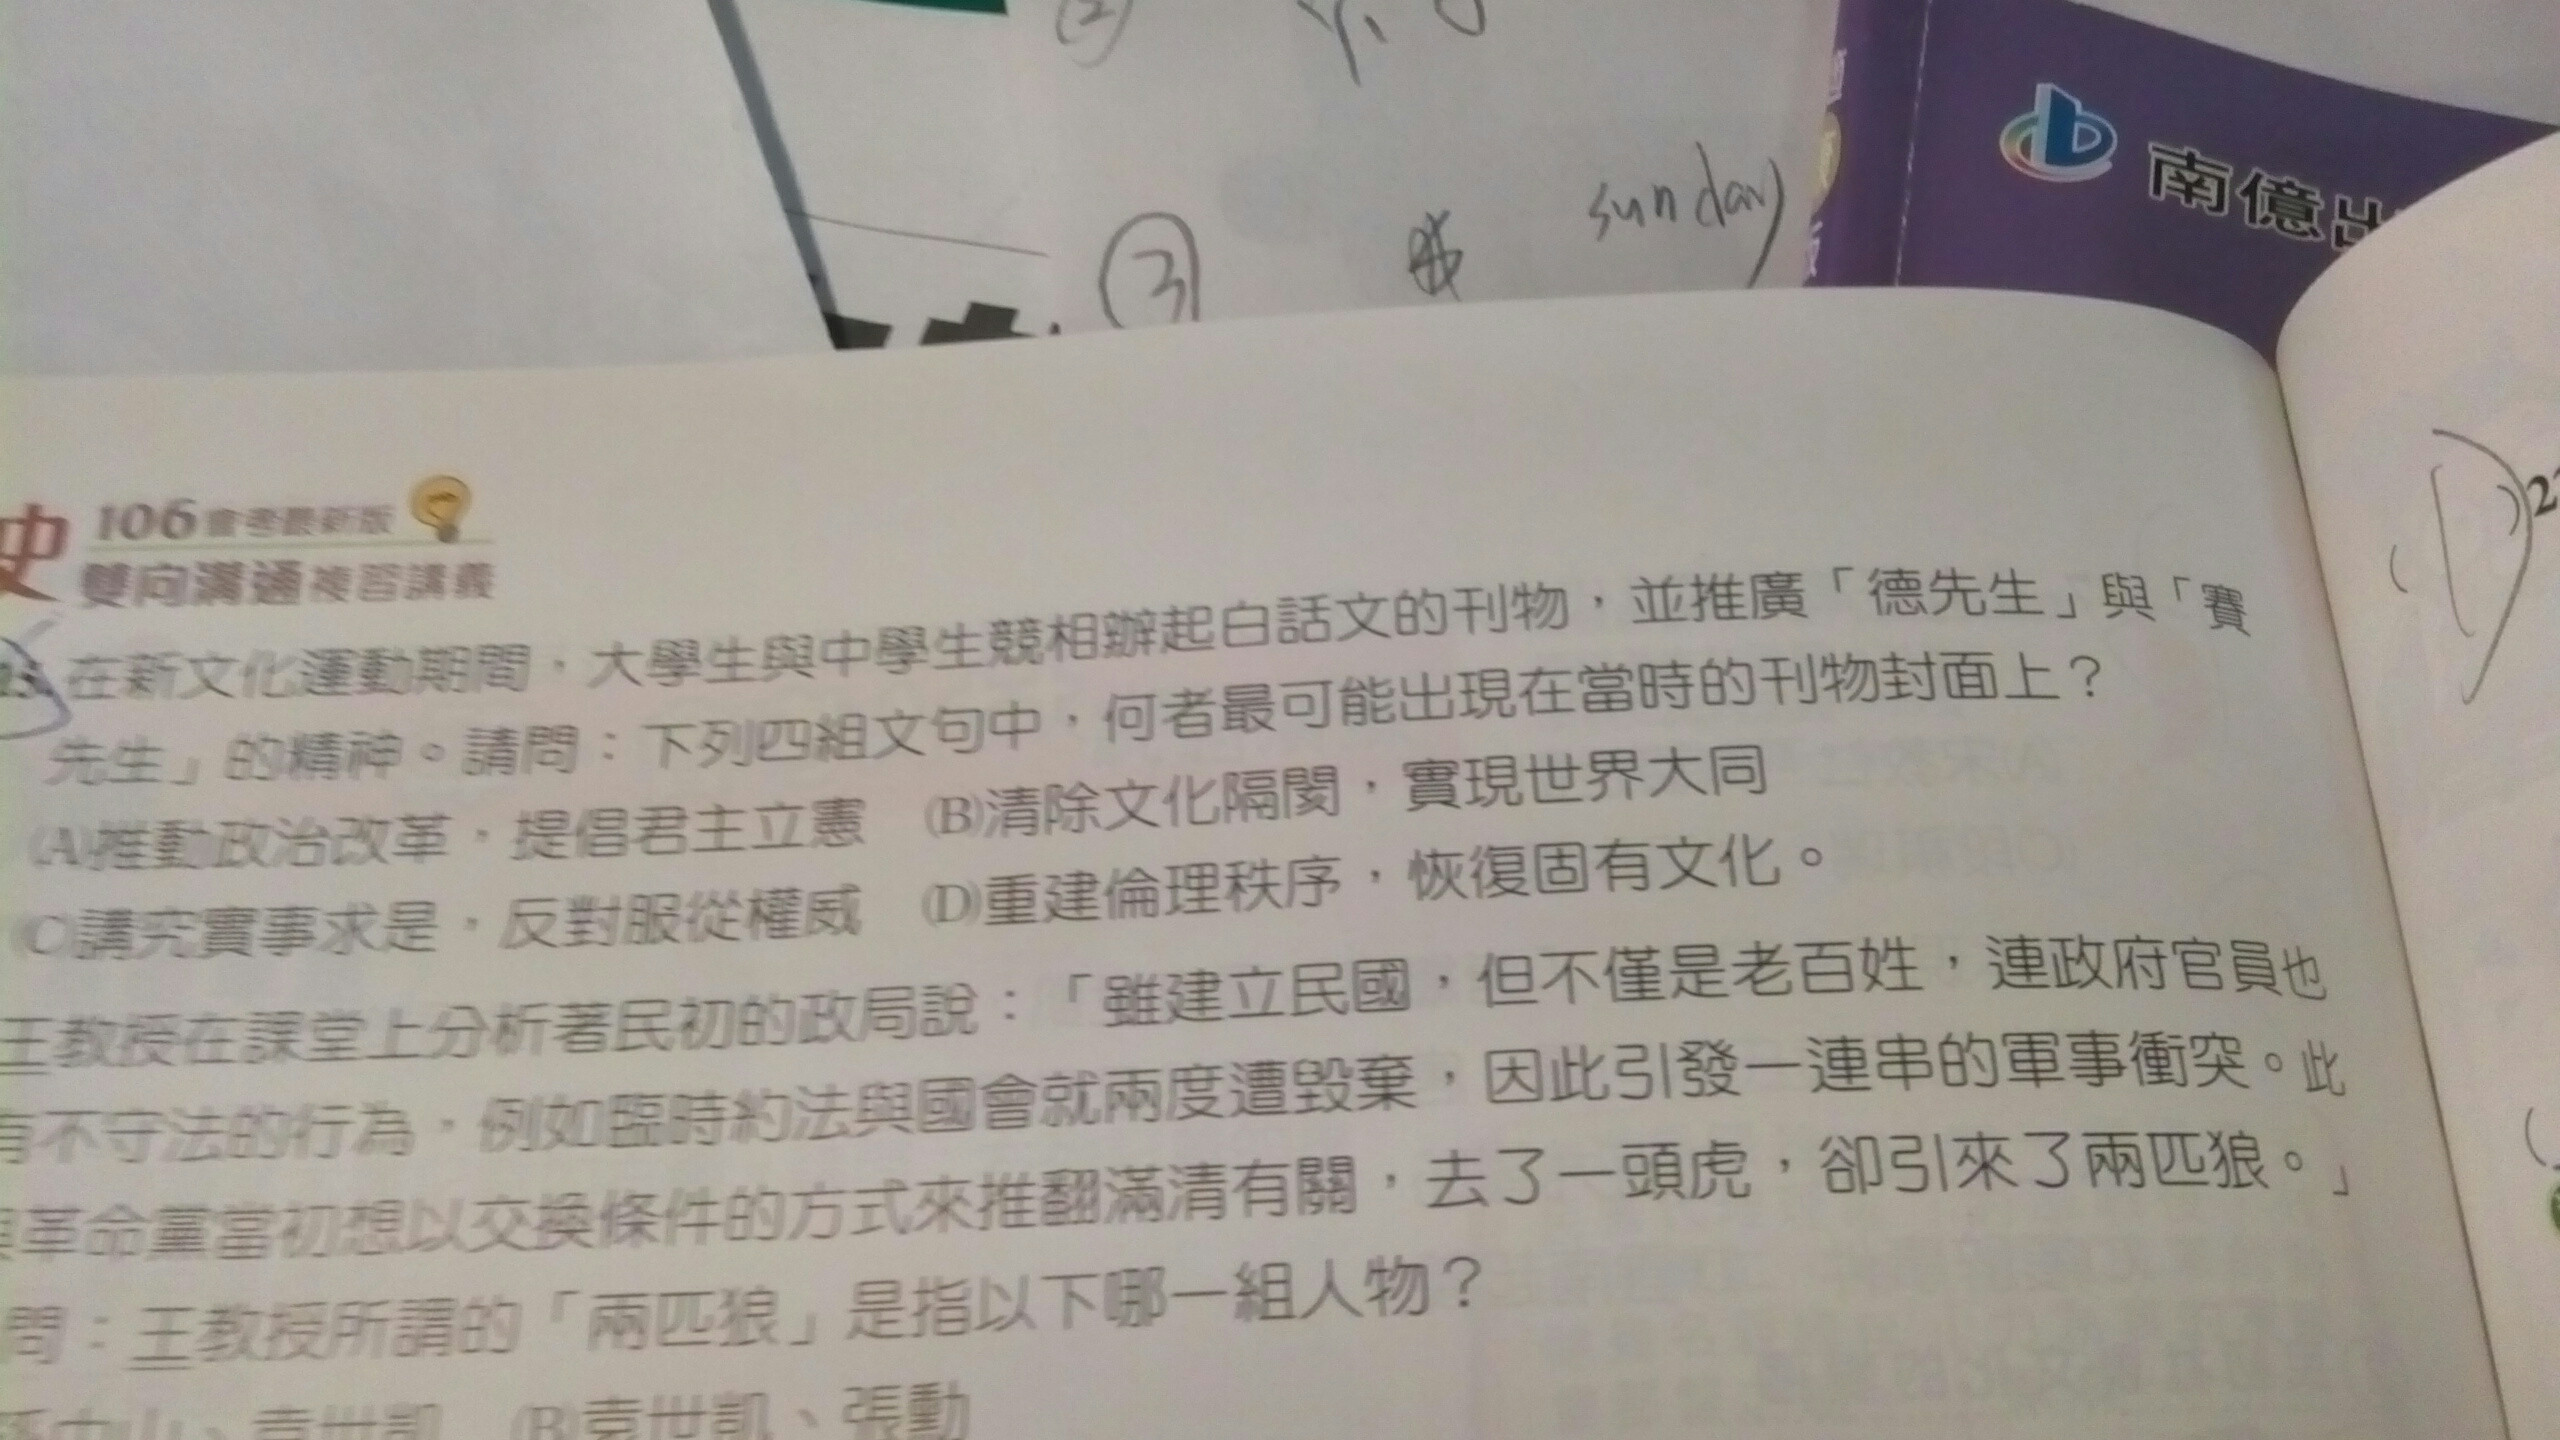 ②
③
sunday
南億出
史 106會考最新版
雙向溝通複習講義
在新文化運動期間，大學生與中學生競相辦起白話文的刊物，並推廣「德先生」與「賽
先生」的精神。請問：下列四組文句中，何者最可能出現在當時的刊物封面上？
(A)推動政治改革，提倡君主立憲 (B)清除文化隔閡，實現世界大同
(C)講究實事求是，反對服從權威 (D)重建倫理秩序，恢復固有文化。
王教授在課堂上分析著民初的政局說：「雖建立民國，但不僅是老百姓，連政府官員也
有不守法的行為，例如臨時約法與國會就兩度遭毀棄，因此引發一連串的軍事衝突。此
與革命黨當初想以交換條件的方式來推翻滿清有關，去了一頭虎，卻引來了兩匹狼。」
問：王教授所謂的「兩匹狼」是指以下哪一組人物？
孫中山、袁世凱 (B)袁世凱、張勳